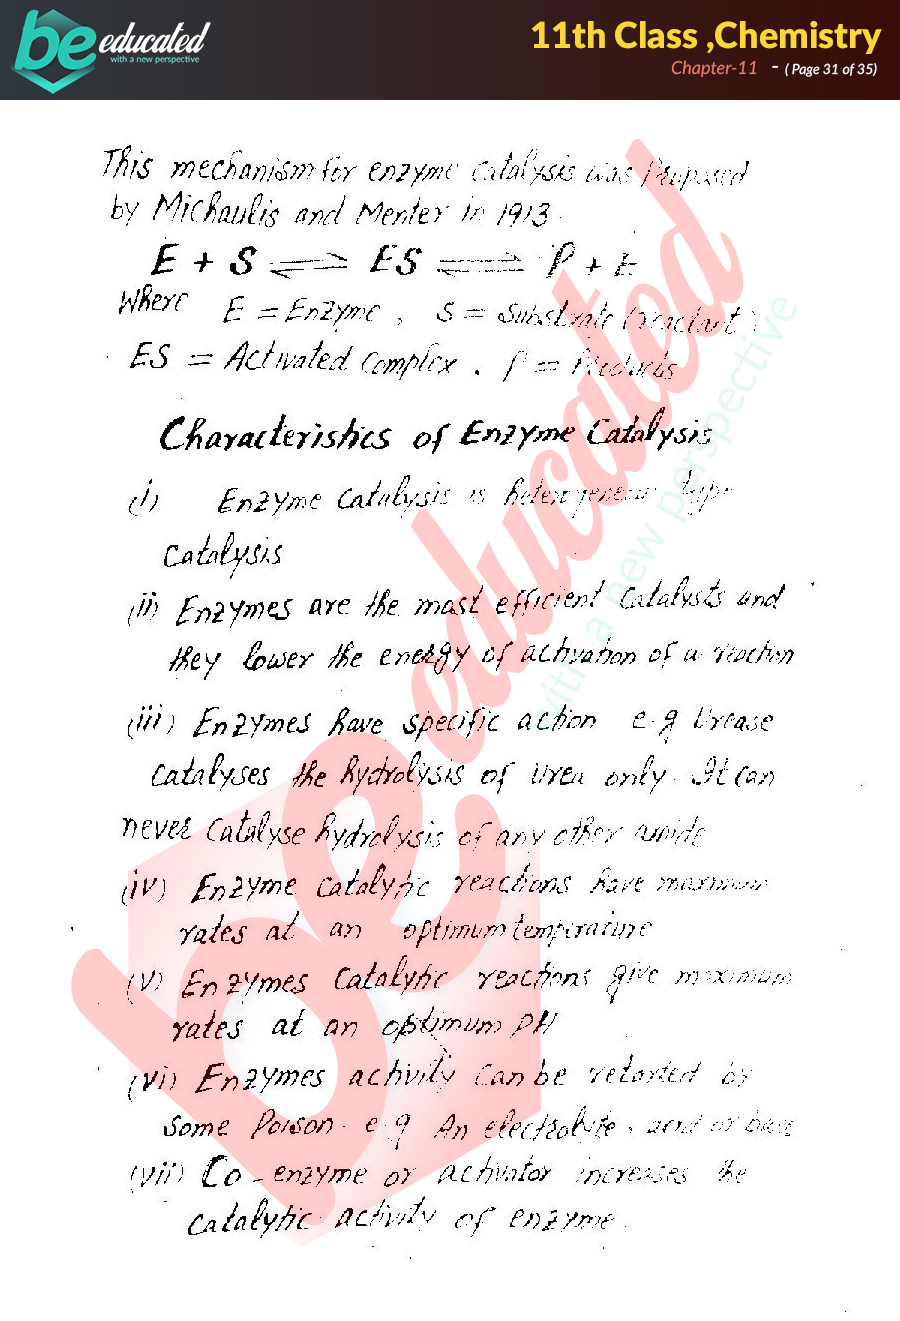 be educated
with a new perspective
11th Class ,Chemistry
Chapter-11 - ( Page 31 of 35)
This mechanism for enzyme catalysis was Proposed
by Michaulis and Menter in 1913.
E + S ⇌ ES ⇌ P + E
Where E = Enzyme , S = Substrate (reactant)
ES = Activated Complex . P = Products
Characteristics of Enzyme Catalysis
(i) Enzyme Catalysis is heterogeneous type
Catalysis
(ii) Enzymes are the most efficient Catalysts and
they lower the energy of activation of a reaction
(iii) Enzymes have specific action e.g Urease
Catalyses the hydrolysis of Urea only. It can
never Catalyse hydrolysis of any other amide
(iv) Enzyme Catalytic reactions have maximum
rates at an optimum temperature
(v) Enzymes Catalytic reactions give maximum
rates at an optimum PH
(vi) Enzymes activity Can be retarted by
Some Poison. e.g An electrolyte, acid or base
(vii) Co-enzyme or activator increases the
Catalytic activity of enzyme.
be educated
with a new perspective